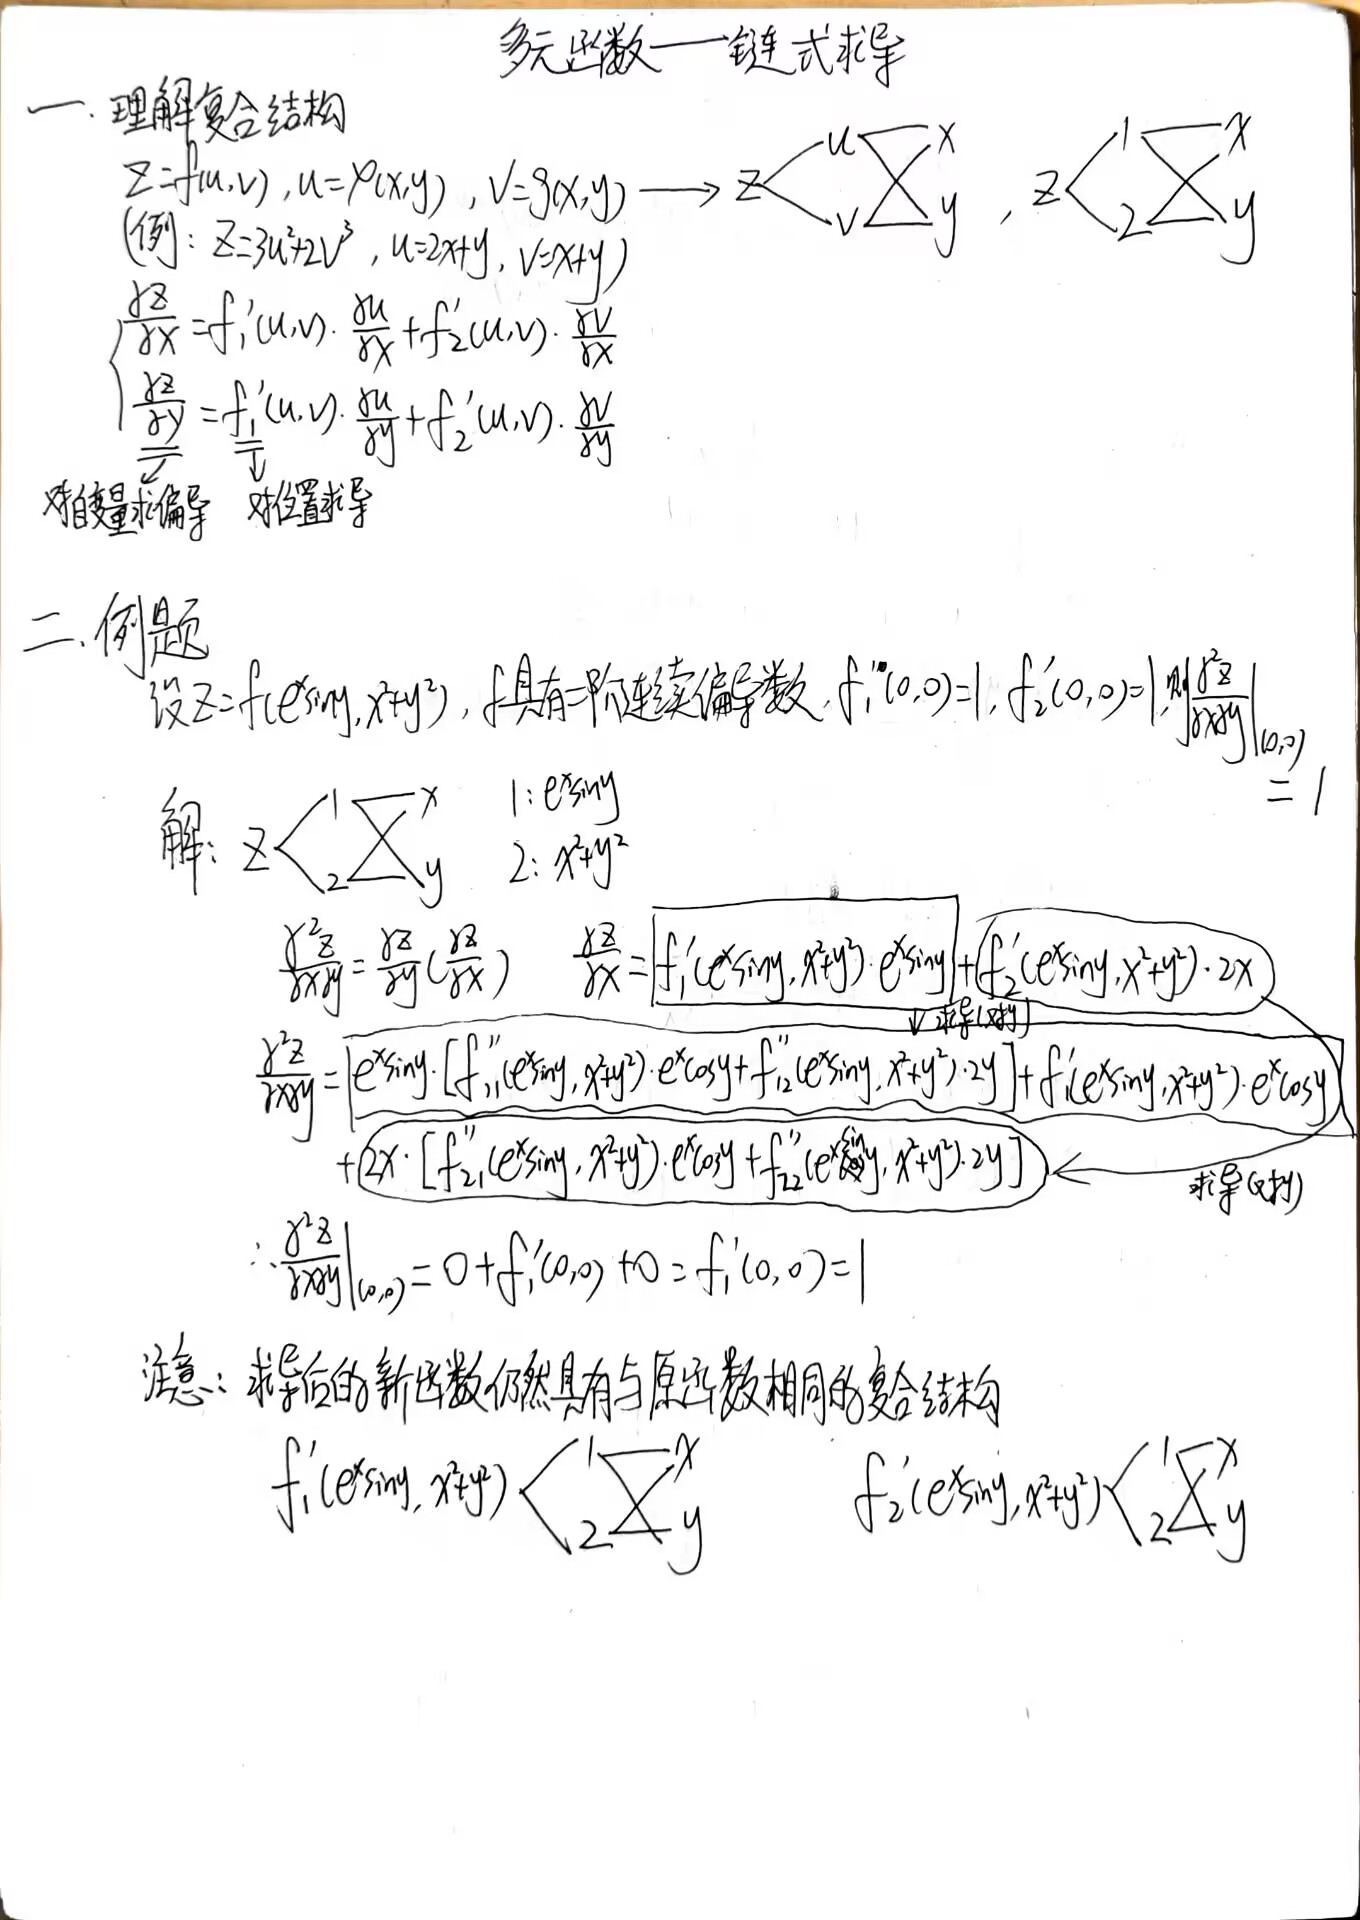 多元函数——链式求导
一. 理解复合结构
Z=f(u,v), u=φ(x,y), v=g(x,y) → Z u v x y , Z 1 2 x y
(例: Z=3u²+2v³, u=2x+y, v=x+y)
∂z/∂x = f₁'(u,v)·∂u/∂x + f₂'(u,v)·∂v/∂x
∂z/∂y = f₁'(u,v)·∂u/∂y + f₂'(u,v)·∂v/∂y
对自变量求偏导 对位置求导
二. 例题
设Z=f(eˣsiny, x²+y²), f具有二阶连续偏导数, f₁'(0,0)=1, f₂'(0,0)=1, 则∂²z/∂x∂y|(0,0)
= 1
解: Z 1 2 x y 1: eˣsiny
2: x²+y²
∂²z/∂x∂y = ∂z/∂y(∂z/∂x) ∂z/∂x = f₁'(eˣsiny, x²+y²)·eˣsiny + f₂'(eˣsiny, x²+y²)·2x
↓ 求导(对y)
∂²z/∂x∂y = eˣsiny·[f₁₁''(eˣsiny, x²+y²)·eˣcosy + f₁₂''(eˣsiny, x²+y²)·2y] + f₁'(eˣsiny, x²+y²)·eˣcosy
+ 2x·[f₂₁''(eˣsiny, x²+y²)·eˣcosy + f₂₂''(eˣsiny, x²+y²)·2y] ←
求导(对y)
∴ ∂²z/∂x∂y|(0,0) = 0 + f₁'(0,0) + 0 = f₁'(0,0) = 1
注意: 求导后的新函数仍然具有与原函数相同的复合结构
f₁'(eˣsiny, x²+y²) 1 2 x y f₂'(eˣsiny, x²+y²) 1 2 x y